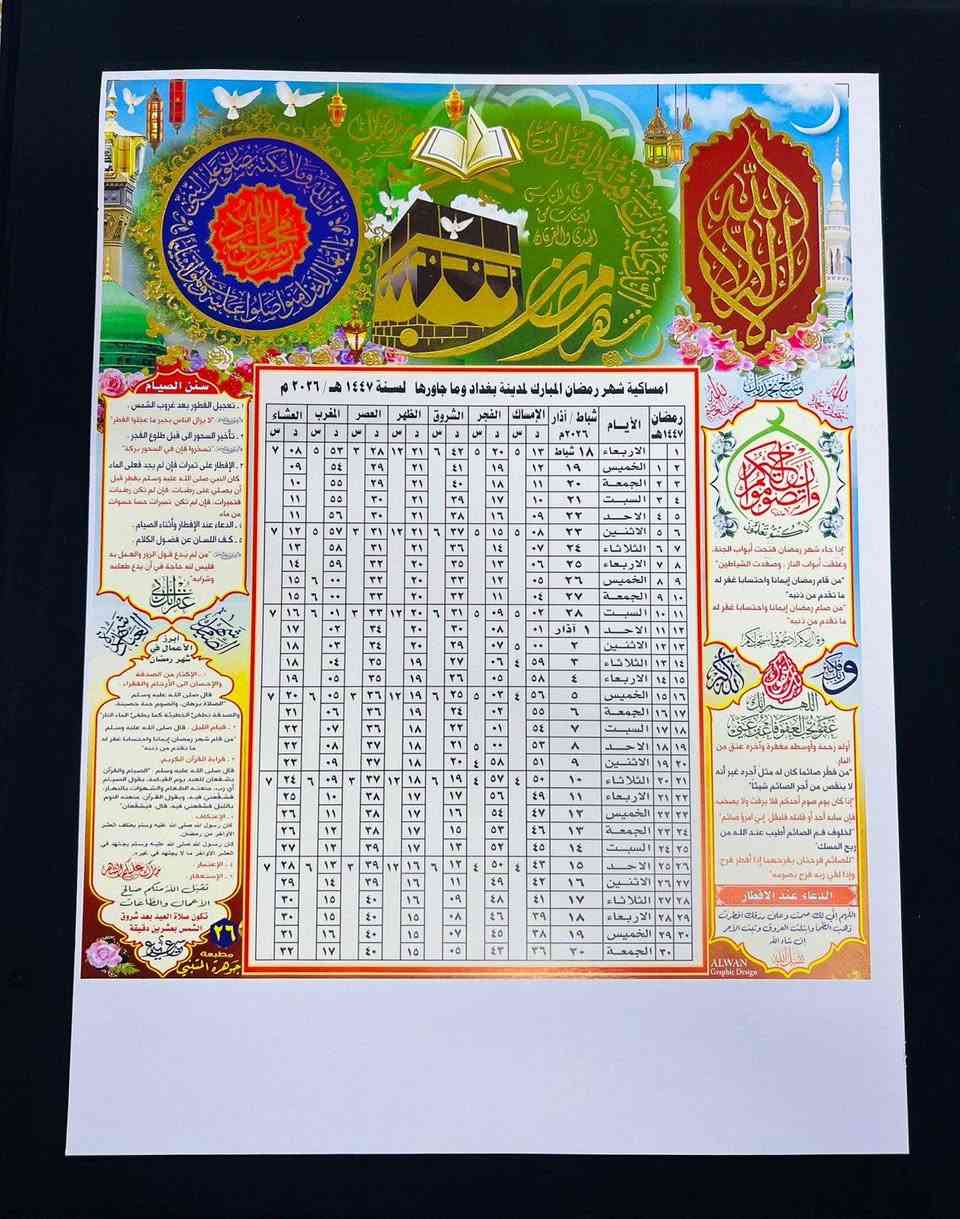 شهر رمضان
الله
محمد
رسول
لا إله إلا الله
امساكية شهر رمضان المبارك لمدينة بغداد وما جاورها لسنة ١٤٤٧ هـ / ٢٠٢٦ م
رمضان ١٤٤٧هـ الأيام شباط / آذار ٢٠٢٦م الإمساك الفجر الشروق الظهر العصر المغرب العشاء
د س د س د س د س د س د س د س
١ الاربعاء ١٨ شباط ١٣ ٥ ٢٠ ٥ ٤٢ ٦ ٢١ ١٢ ٢٨ ٣ ٥٣ ٥ ٠٨ ٧
٢ ١ الخميس ١٩ ١٢ ١٩ ٤١ ٢١ ٢٩ ٥٤ ٠٩
٣ ٢ الجمعة ٢٠ ١١ ١٨ ٤٠ ٢١ ٢٩ ٥٥ ١٠
٤ ٣ السبت ٢١ ١٠ ١٧ ٣٩ ٢١ ٣٠ ٥٥ ١١
٥ ٤ الاحد ٢٢ ٠٩ ١٦ ٣٨ ٢١ ٣٠ ٥٦ ١١
٦ ٥ الاثنين ٢٣ ٠٨ ٥ ١٥ ٥ ٣٧ ٦ ٢١ ١٢ ٣١ ٣ ٥٧ ٥ ١٢ ٧
٧ ٦ الثلاثاء ٢٤ ٠٧ ١٤ ٣٦ ٢١ ٣١ ٥٨ ١٣
٨ ٧ الاربعاء ٢٥ ٠٦ ١٣ ٣٥ ٢٠ ٣٢ ٥٩ ١٤
٩ ٨ الخميس ٢٦ ٠٥ ١٢ ٣٣ ٢٠ ٣٢ ٠٠ ٦ ١٥
١٠ ٩ الجمعة ٢٧ ٠٤ ١١ ٣٢ ٢٠ ٣٣ ٠٠ ١٥
١١ ١٠ السبت ٢٨ ٠٢ ٥ ٠٩ ٥ ٣١ ٦ ٢٠ ١٢ ٣٣ ٣ ٠١ ٦ ١٦ ٧
١٢ ١١ الاحد ١ آذار ٠١ ٠٨ ٣٠ ٢٠ ٣٤ ٠٢ ١٧
١٣ ١٢ الاثنين ٢ ٠٠ ٥ ٠٧ ٢٩ ٢٠ ٣٤ ٠٣ ١٨
١٤ ١٣ الثلاثاء ٣ ٥٩ ٤ ٠٦ ٢٧ ١٩ ٣٥ ٠٤ ١٨
١٥ ١٤ الاربعاء ٤ ٥٨ ٠٥ ٢٦ ١٩ ٣٥ ٠٥ ١٩
١٦ ١٥ الخميس ٥ ٥٦ ٤ ٠٣ ٥ ٢٥ ٦ ١٩ ١٢ ٣٦ ٣ ٠٥ ٦ ٢٠ ٧
١٧ ١٦ الجمعة ٦ ٥٥ ٠٢ ٢٤ ١٩ ٣٦ ٠٦ ٢١
١٨ ١٧ السبت ٧ ٥٤ ٠١ ٢٢ ١٨ ٣٦ ٠٧ ٢٢
١٩ ١٨ الاحد ٨ ٥٣ ٠٠ ٥ ٢١ ١٨ ٣٧ ٠٨ ٢٢
٢٠ ١٩ الاثنين ٩ ٥١ ٥٨ ٤ ٢٠ ١٨ ٣٧ ٠٩ ٢٣
٢١ ٢٠ الثلاثاء ١٠ ٥٠ ٤ ٥٧ ٤ ١٩ ٦ ١٨ ١٢ ٣٧ ٣ ٠٩ ٦ ٢٤ ٧
٢٢ ٢١ الاربعاء ١١ ٤٩ ٥٦ ١٧ ١٧ ٣٨ ١٠ ٢٥
٢٣ ٢٢ الخميس ١٢ ٤٧ ٥٤ ١٦ ١٧ ٣٨ ١١ ٢٦
٢٤ ٢٣ الجمعة ١٣ ٤٦ ٥٣ ١٥ ١٧ ٣٨ ١٢ ٢٦
٢٥ ٢٤ السبت ١٤ ٤٥ ٥٢ ١٣ ١٧ ٣٩ ١٢ ٢٧
٢٦ ٢٥ الاحد ١٥ ٤٣ ٤ ٥٠ ٤ ١٢ ٦ ١٦ ١٢ ٣٩ ٣ ١٣ ٦ ٢٨ ٧
٢٧ ٢٦ الاثنين ١٦ ٤٢ ٤٩ ١١ ١٦ ٣٩ ١٤ ٢٩
٢٨ ٢٧ الثلاثاء ١٧ ٤١ ٤٨ ٠٩ ١٦ ٤٠ ١٥ ٣٠
٢٩ ٢٨ الاربعاء ١٨ ٣٩ ٤٦ ٠٨ ١٥ ٤٠ ١٥ ٣٠
٣٠ ٢٩ الخميس ١٩ ٣٨ ٤٥ ٠٧ ١٥ ٤٠ ١٦ ٣١
٣٠ الجمعة ٢٠ ٣٦ ٤٣ ٠٥ ١٥ ٤٠ ١٧ ٣٢
وان تصوموا خير لكم
ان كنتم تعلمون
إذا جاء شهر رمضان فتحت أبواب الجنة،
وغلقت أبواب النار . وصفدت الشياطين"
"من قام رمضان إيمانا واحتسابا غفر له
ما تقدم من ذنبه"
"من صام رمضان إيمانا واحتسابا غفر له
ما تقدم من ذنبه"
وقال ربكم ادعوني استجب لكم
الله أكبر
اللهم إنك
عفو تحب العفو فاعف عني
أوله رحمة وأوسطه مغفرة وآخره عتق من
النار.
"من فطر صائما كان له مثل أجره غير أنه
لا ينقص من أجر الصائم شيئا"
"إذا كان يوم صوم أحدكم فلا يرفث ولا يصخب
فإن سابه أحد أو قاتله فليقل إني امرؤ صائم"
"لخلوف فم الصائم أطيب عند الله من
ريح المسك"
"للصائم فرحتان يفرحهما إذا أفطر فرح
وإذا لقي ربه فرح بصومه"
الدعاء عند الافطار
اللهم إني لك صمت وعلى رزقك افطرت
ذهب الظمأ وابتلت العروق وثبت الأجر
ان شاء الله
ALWAN
Graphic Design
سنن الصيام
١ . تعجيل الفطور بعد غروب الشمس .
"لا يزال الناس بخير ما عجلوا الفطر"
٢ . تأخير السحور الى قبل طلوع الفجر .
"تسحروا فإن في السحور بركة"
٣ . الإفطار على تمرات فإن لم يجد فعلى الماء
كان النبي صلى الله عليه وسلم يفطر قبل
أن يصلي على رطبات، فإن لم تكن رطبات
فتميرات، فإن لم تكن تميرات حسا حسوات
من ماء
٤ . الدعاء عند الإفطار وأثناء الصيام .
٥ . كف اللسان عن فضول الكلام .
"من لم يدع قول الزور والعمل به
فليس لله حاجة في أن يدع طعامه
وشرابه"
أبرز
الأعمال في
شهر رمضان
١ . الإكثار من الصدقة
والإحسان إلى الأرحام والفقراء
قال صلى الله عليه وسلم
"الصلاة برهان، والصوم جنة حصينة،
والصدقة تطفئ الخطيئة كما يطفئ الماء النار"
٢ . قيام الليل . قال صلى الله عليه وسلم
"من قام شهر رمضان إيمانا واحتسابا غفر له
ما تقدم من ذنبه"
٣ . قراءة القرآن الكريم.
قال صلى الله عليه وسلم "الصيام والقرآن
يشفعان للعبد يوم القيامة، يقول الصيام
أي رب، منعته الطعام والشهوات بالنهار،
فشفعني فيه، ويقول القرآن، منعته النوم
بالليل فشفعني فيه، قال، فيشفعان"
٤ . الإعتكاف.
كان رسول الله صلى الله عليه وسلم يعتكف العشر
الأواخر من رمضان.
كان رسول الله صلى الله عليه وسلم يجتهد في
العشر الأواخر ما لا يجتهد في غيره.
٥ . الإعتمار.
٦ . الإستغفار.
تقبل الله منكم صالح
الأعمال والطاعات
تكون صلاة العيد بعد شروق
الشمس بعشرين دقيقة
٢٦
مطبعة
جوهرة المتنبي